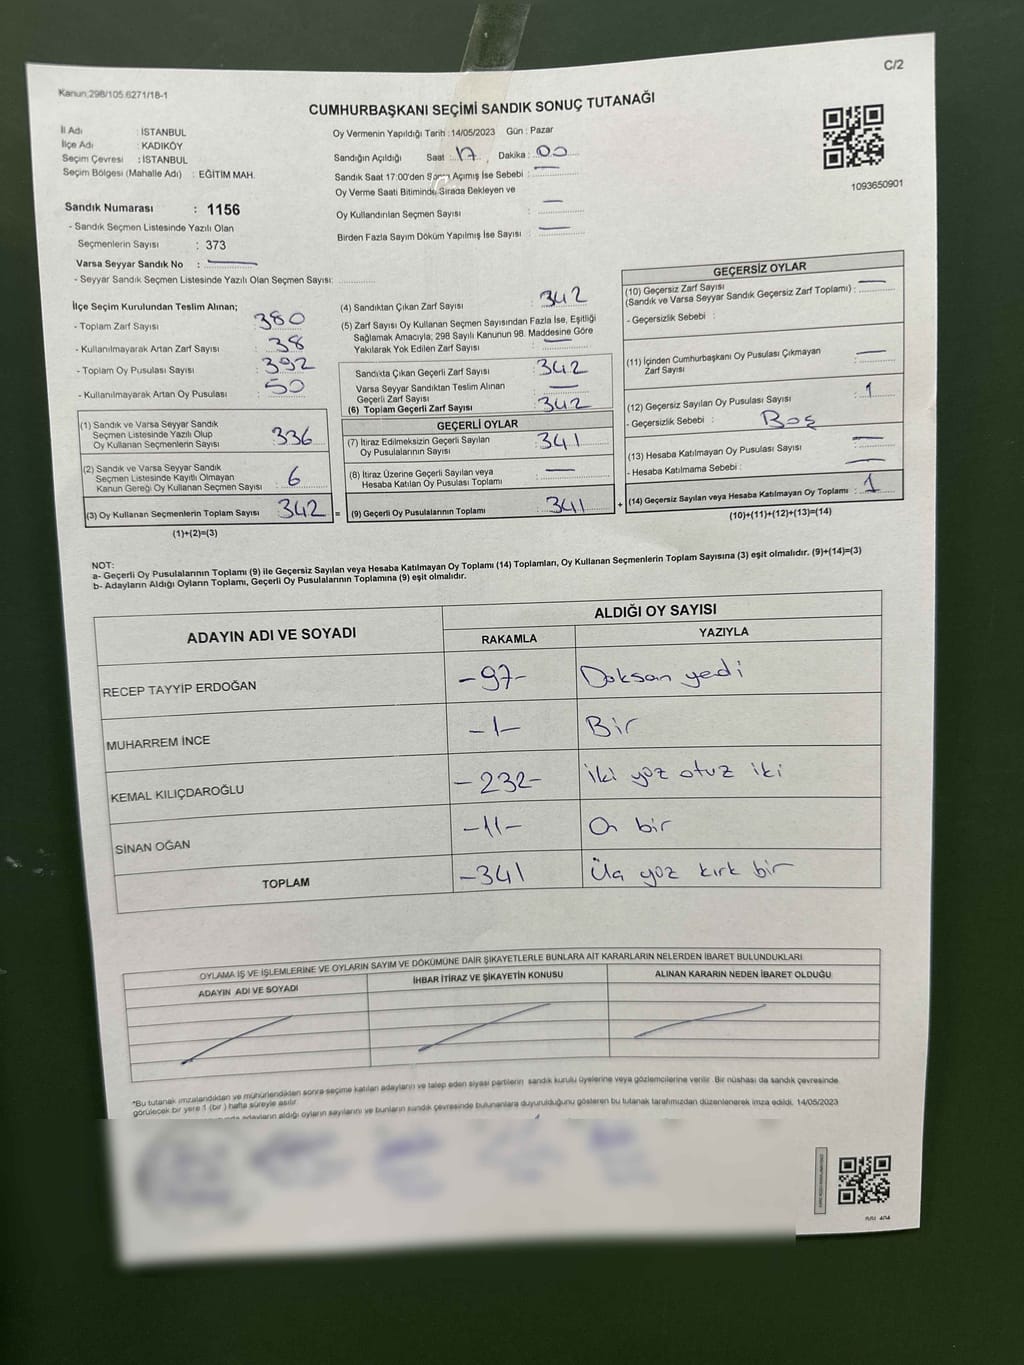 C/2
Kanun:298/105.6271/18-1
CUMHURBAŞKANI SEÇİMİ SANDIK SONUÇ TUTANAĞI
İl Adı : İSTANBUL
İlçe Adı : KADIKÖY
Seçim Çevresi : İSTANBUL
Seçim Bölgesi (Mahalle Adı) : EĞİTİM MAH.
Sandık Numarası : 1156
- Sandık Seçmen Listesinde Yazılı Olan
Seçmenlerin Sayısı : 373
Varsa Seyyar Sandık No :
- Seyyar Sandık Seçmen Listesinde Yazılı Olan Seçmen Sayısı:
Oy Vermenin Yapıldığı Tarih : 14/05/2023 Gün : Pazar
Sandığın Açıldığı Saat : 17 Dakika : 00
Sandık Saat 17:00'den Sonra Açımış İse Sebebi :
Oy Verme Saati Bitiminde Sırada Bekleyen ve
Oy Kullandırılan Seçmen Sayısı :
Birden Fazla Sayım Döküm Yapılmış İse Sayısı :
1093650901
İlçe Seçim Kurulundan Teslim Alınan;
- Toplam Zarf Sayısı : 380
- Kullanılmayarak Artan Zarf Sayısı : 38
- Toplam Oy Pusulası Sayısı : 392
- Kullanılmayarak Artan Oy Pusulası : 50
(1) Sandık ve Varsa Seyyar Sandık
Seçmen Listesinde Yazılı Olup
Oy Kullanan Seçmenlerin Sayısı : 336
(2) Sandık ve Varsa Seyyar Sandık
Seçmen Listesinde Kayıtlı Olmayan
Kanun Gereği Oy Kullanan Seçmen Sayısı : 6
(3) Oy Kullanan Seçmenlerin Toplam Sayısı : 342 =
(1)+(2)=(3)
(4) Sandıktan Çıkan Zarf Sayısı : 342
(5) Zarf Sayısı Oy Kullanan Seçmen Sayısından Fazla İse, Eşitliği
Sağlamak Amacıyla; 298 Sayılı Kanunun 98. Maddesine Göre
Yakılarak Yok Edilen Zarf Sayısı :
Sandıkta Çıkan Geçerli Zarf Sayısı : 342
Varsa Seyyar Sandıktan Teslim Alınan
Geçerli Zarf Sayısı :
(6) Toplam Geçerli Zarf Sayısı : 342
GEÇERLİ OYLAR
(7) İtiraz Edilmeksizin Geçerli Sayılan
Oy Pusulalarının Sayısı : 341
(8) İtiraz Üzerine Geçerli Sayılan veya
Hesaba Katılan Oy Pusulası Toplamı :
(9) Geçerli Oy Pusulalarının Toplamı : 341 +
GEÇERSİZ OYLAR
(10) Geçersiz Zarf Sayısı
(Sandık ve Varsa Seyyar Sandık Geçersiz Zarf Toplamı) :
- Geçersizlik Sebebi :
(11) İçinden Cumhurbaşkanı Oy Pusulası Çıkmayan
Zarf Sayısı :
(12) Geçersiz Sayılan Oy Pusulası Sayısı : 1
- Geçersizlik Sebebi : Boş
(13) Hesaba Katılmayan Oy Pusulası Sayısı :
- Hesaba Katılmama Sebebi :
(14) Geçersiz Sayılan veya Hesaba Katılmayan Oy Toplamı : 1
(10)+(11)+(12)+(13)=(14)
NOT:
a- Geçerli Oy Pusulalarının Toplamı (9) ile Geçersiz Sayılan veya Hesaba Katılmayan Oy Toplamı (14) Toplamları, Oy Kullanan Seçmenlerin Toplam Sayısına (3) eşit olmalıdır. (9)+(14)=(3)
b- Adayların Aldığı Oyların Toplamı, Geçerli Oy Pusulalarının Toplamına (9) eşit olmalıdır.
ADAYIN ADI VE SOYADI
ALDIĞI OY SAYISI
RAKAMLA YAZIYLA
RECEP TAYYİP ERDOĞAN -97- Doksan yedi
MUHARREM İNCE -1- Bir
KEMAL KILIÇDAROĞLU -232- iki yüz otuz iki
SİNAN OĞAN -11- On bir
TOPLAM -341 Üç yüz kırk bir
OYLAMA İŞ VE İŞLEMLERİNE VE OYLARIN SAYIM VE DÖKÜMÜNE DAİR ŞİKAYETLERLE BUNLARA AİT KARARLARIN NELERDEN İBARET BULUNDUKLARI
ADAYIN ADI VE SOYADI İHBAR İTİRAZ VE ŞİKAYETİN KONUSU ALINAN KARARIN NEDEN İBARET OLDUĞU
*Bu tutanak imzalandıktan ve mühürlendikten sonra seçime katılan adayların ve talep eden siyasi partilerin sandık kurulu üyelerine veya gözlemcilerine verilir. Bir nüshası da sandık çevresinde
görülecek bir yere 1 (bir) hafta süreyle asılır.
adayların aldığı oyların sayılarını ve bunların sandık çevresinde bulunanlara duyurulduğunu gösteren bu tutanak tarafımızdan düzenlenerek imza edildi. 14/05/2023